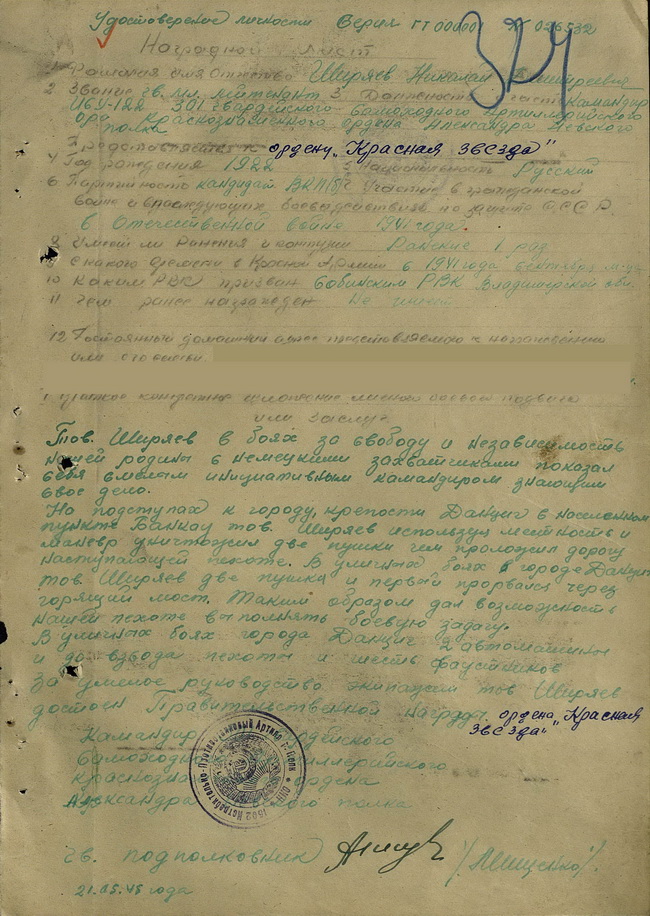 Удостоверение личности Серия ГТ 000001 № 026532
324
Наградной лист
1. Фамилия имя Отчество Ширяев Николай Дмитриевич
2 Звание гв. мл. лейтенант 3. Должность часть Командир
ИСУ-122 301 гвардейского Самоходного Артиллерийского
орд Краснознаменного ордена Александра Невского
полка
Представляется к ордену "Красная звезда"
4 Год рождения 1922 Национальность Русский
6 Партийность кандидат ВКП(б) Участие в гражданской
войне и последующих боевых действиях по защите СССР
в Отечественной войне 1941 года.
Имеет ли ранения и контузии Ранение 1 раз
С какого времени в Красной Армии с 1941 года сентябрь
10 Каким РВК призван Собинским РВК Владимирской обл.
11 Чем ранее награжден Не имеет
12 Постоянный домашний адрес представляемого к награждению
или его семьи.
Краткое конкретное изложение личного боевого подвига
или заслуг
Тов. Ширяев в боях за свободу и независимость
нашей родины с немецкими захватчиками показал
себя смелым инициативным командиром знающим
свое дело.
На подступах к городу, крепости Данциг в населенном
пункте Банкау тов. Ширяев используя местность и
маневр уничтожил две пушки чем проложил дорогу
наступающей пехоте. В уличных боях в городе Данциг
тов. Ширяев две пушки и первый прорвался через
горящий мост. Таким образом дал возможность
нашей пехоте выполнять боевую задачу.
В уличных боях города Данциг 2 автомашины
и до взвода пехоты и шесть фаустников
За умелое руководство экипажем тов Ширяев
достоен Правительственной награды. ордена "Красная
звезда"
Командир
Самоходного
Краснознаменного ордена
Александра Невского полка
гв. подполковник /Мищенко/
21.05.45 года